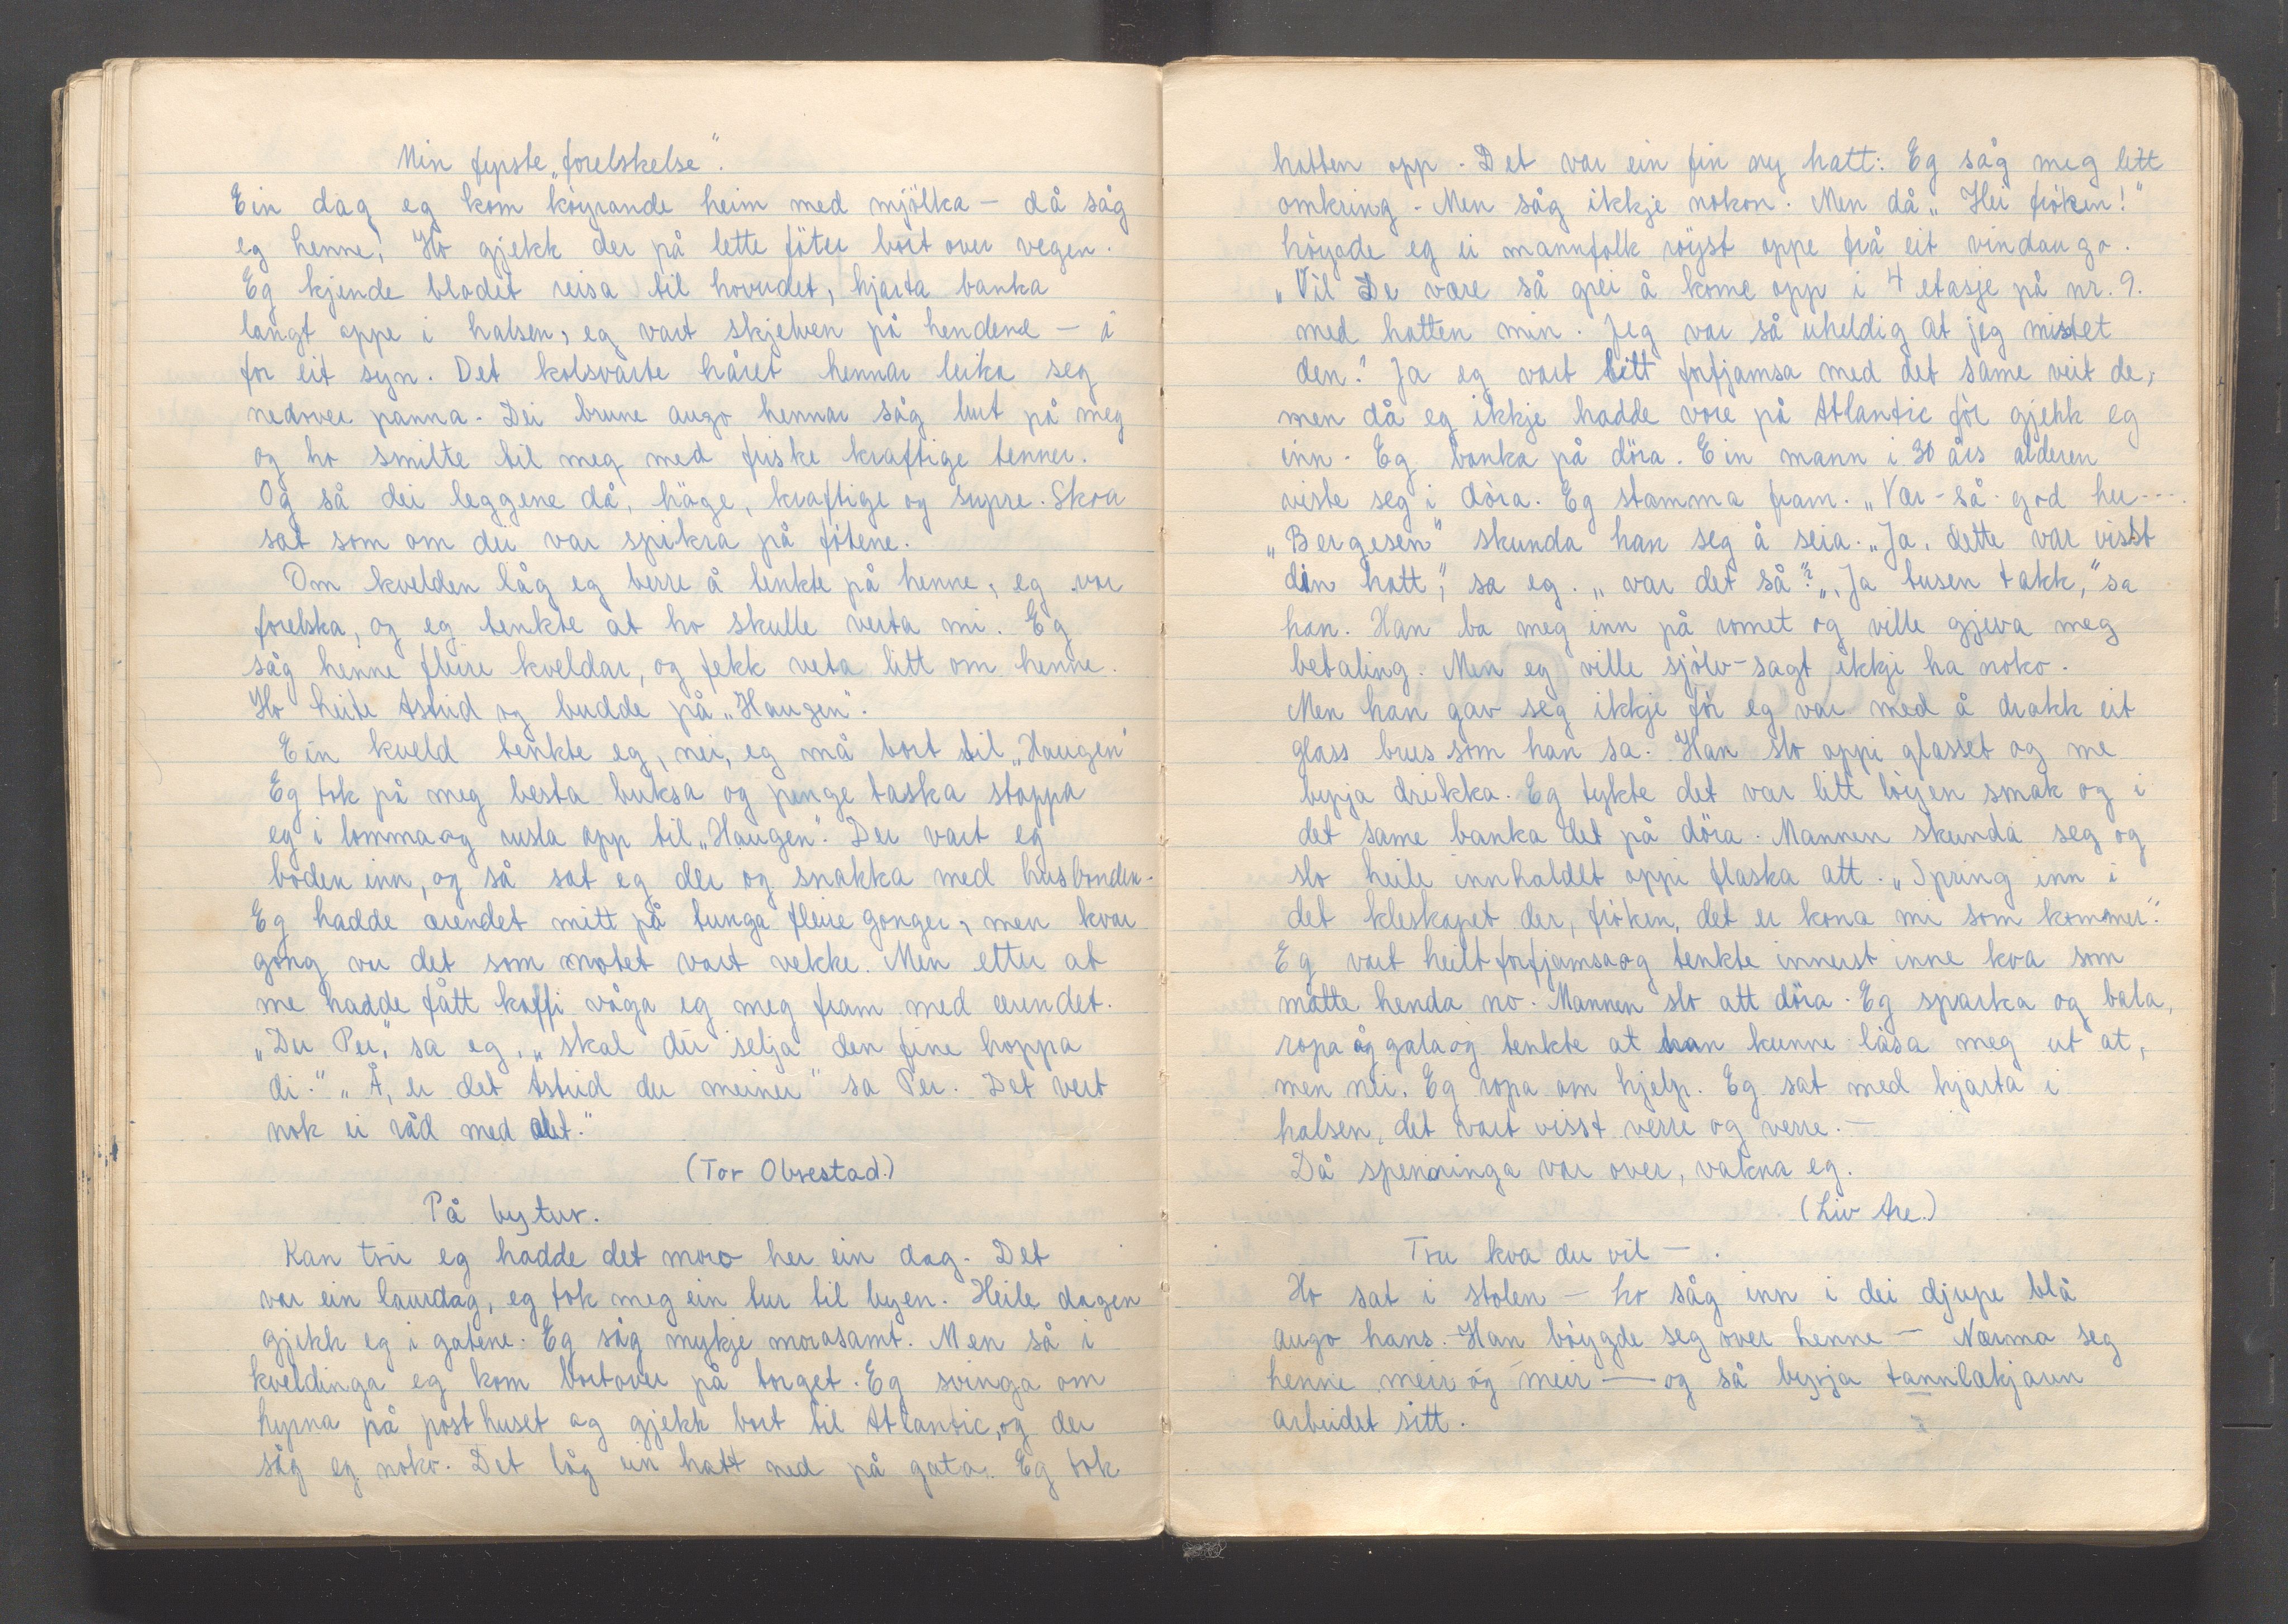 Min fyrste „forelskelse".
Ein dag eg kom köyrande heim med mjölka - då såg
eg henne! Ho gjekk der på lette föter bort over vegen.
Eg kjende blodet reisa til hovudet, hjarta banka
langt oppe i halsen, eg vart skjelven på hendene - å
for eit syn. Det kolsvarte håret hennar leika seg
nedover panna. Dei brune augo hennar såg lurt på meg
og ho smilte til meg med friske kraftige tenner.
Og så dei leggene då, höge, kraftige og supre. Skoa
sat som om dei var spikra på fötene.
Om kvelden låg eg berre å tenkte på henne, eg var
forelska, og eg tenkte at ho skulle verta mi. Eg
såg henne fleire kveldar, og fekk veta litt om henne.
Ho heite Astrid og budde på „Haugen".
Ein kveld tenkte eg, nei, eg må bort til „Haugen"
Eg tok på meg besta buksa og penge taska stappa
eg i lomma og rusla opp til „Haugen". Der vart eg
böden inn, og så sat eg der og snakka med husbonden.
Eg hadde ærendet mitt på tunga fleire gonger, men kvar
gong var det som motet vart vekke. Men etter at
me hadde fått kaffi våga eg meg fram med ærendet.
„Du Per," sa eg, „skal du selja den fine hoppa
di." „Å, er det Astrid du meiner" sa Per. Det vert
nok ei råd med det."
(Tor Obrestad.)
På bytur.
Kan tru eg hadde det moro her ein dag. Det
var ein laurdag, eg tok meg ein tur til byen. Heile dagen
gjekk eg i gatene. Eg såg mykje morosamt. Men så i
kveldinga eg kom bortover på torget. Eg svinga om
hyrna på posthuset og gjekk bort til Atlantic, og der
såg eg noko. Det låg ein hatt ned på gata. Eg tok
hatten opp. Det var ein fin ny hatt: Eg såg meg litt
omkring. Men såg ikkje nokon. Men då „Hei fröken!"
höyrde eg ei mannfolk röyst oppe frå eit vindaugo.
„Vil De være så grei å kome opp i 4 etasje på nr. 9.
med hatten min. Jeg var så uheldig at jeg mistet
den." Ja eg vart litt forfjamsa med det same veit de,
men då eg ikkje hadde vore på Atlantic för gjekk eg
inn. Eg banka på döra. Ein mann i 30 års alderen
viste seg i döra. Eg stamma fram. „Vær-så-god her---
„Bergesen" skunda han seg å seia. „Ja, dette var visst
din hatt," sa eg. „var det så"? „Ja tusen takk," sa
han. Han ba meg inn på romet og ville gjeva meg
betaling. Men eg ville sjölv-sagt ikkje ha noko.
Men han gav seg ikkje för eg var med å drakk eit
glass brus som han sa. Han slo oppi glasset og me
byrja drikka. Eg tykte det var litt löyen smak og i
det same banka det på döra. Mannen skunda seg og
slo heile innhaldet oppi flaska att. „Spring inn i
det kleskapet der, fröken, det er kona mi som kommer".
Eg vart heilt forfjamsa og tenkte innerst inne kva som
måtte henda no. Mannen slo att döra. Eg sparka og bala,
ropa og gala og tenkte at han kunne låsa meg ut at,
men nei. Eg ropa om hjelp. Eg sat med hjarta i
halsen, det vart visst verre og verre.-
Då spenninga var over, vakna eg.
(Liv Are.)
Tru kva du vil - .
Ho sat i stolen - ho såg inn i dei djupe blå
augo hans. Han böygde seg over henne - Nærma seg
henne meir og meir - og så byrja tannlækjaren
arbeidet sitt.